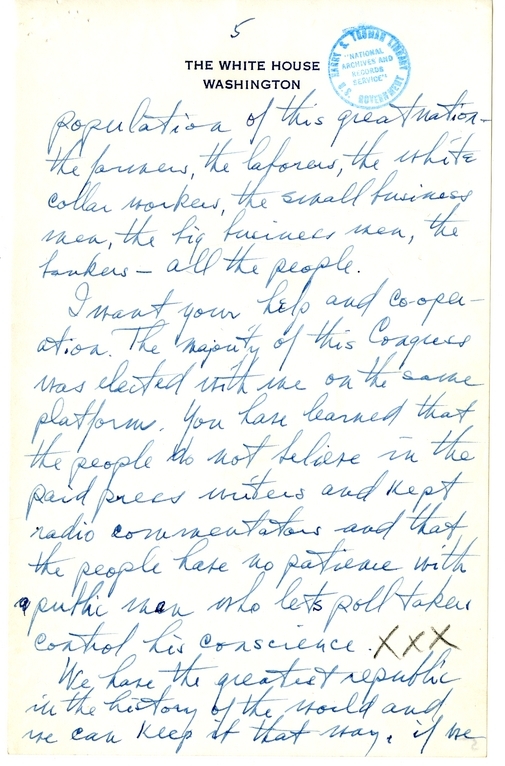 5
THE WHITE HOUSE
WASHINGTON
HARRY S. TRUMAN LIBRARY
"NATIONAL
ARCHIVES AND
RECORDS
SERVICE"
U.S. GOVERNMENT
population of this great nation -
the farmers, the laborers, the white
collar workers, the small business
men, the big business men, the
bankers - all the people.
I want your help and co-oper-
ation. The majority of this Congress
was elected with me on the same
platform. You have learned that
the people do not believe in the
paid press writers and kept
radio commentators and that
the people have no patience with
a public man who lets poll takers
control his conscience. XXX
We have the greatest republic
in the history of the world and
we can keep it that way, if we
2